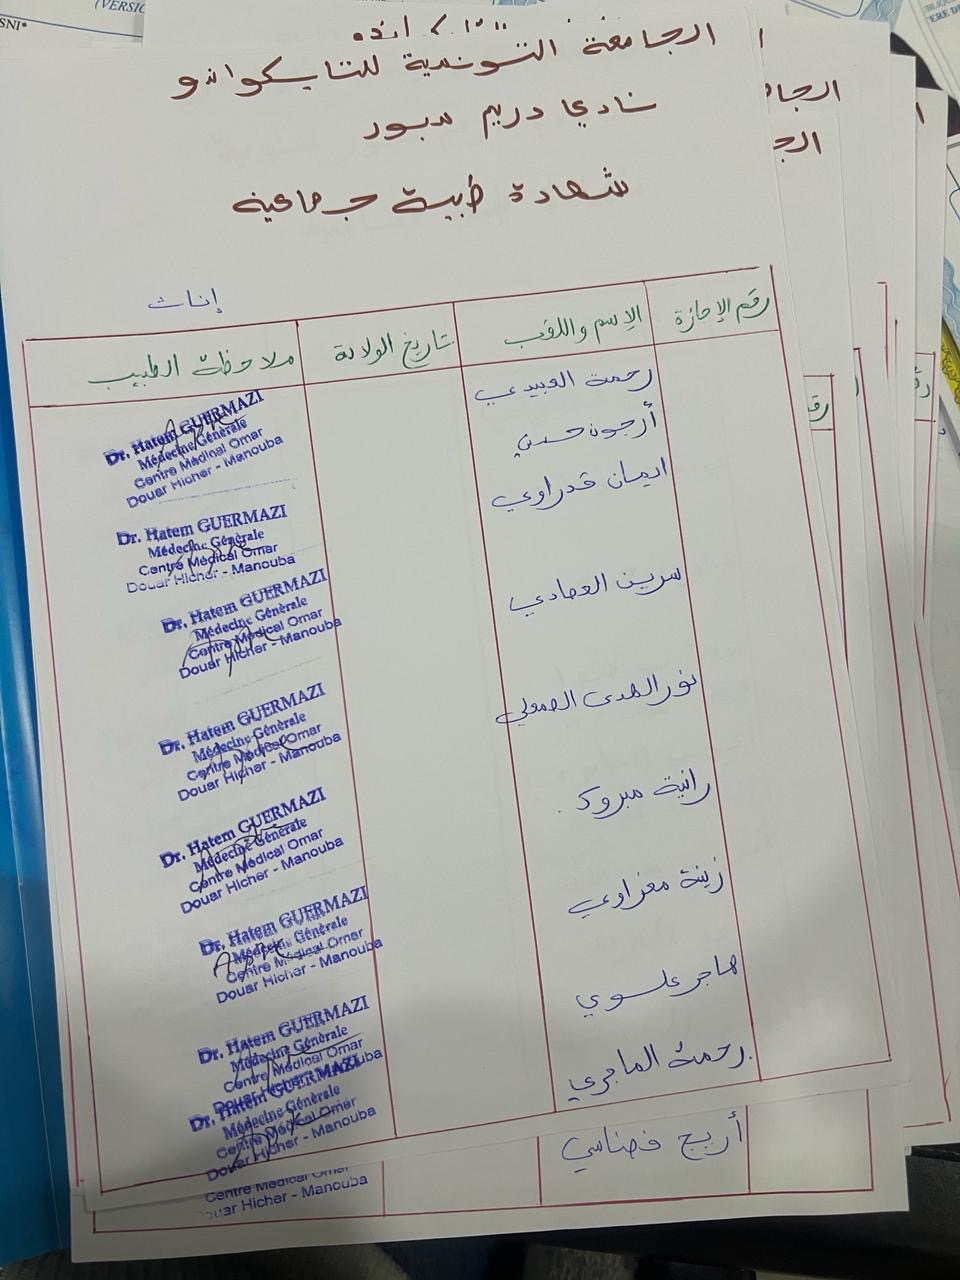 (VERSIO
SNI*
ERE DE
الجامعة التونسية للتايكواندو
نادي دريم سبور
شهادة طبية جماعية
إناث
رقم الإجازة
الإسم واللقب
تاريخ الولادة
ملاحظة الطبيب
رحمة العبيدي
أرجون حسن
ايمان قدراوي
سرين العمادي
نور الهدى الصولي
رانية مبروك
زينة مغزاوي
هاجر علسوي
رحمة الماجري
أريج فضاسي
Dr. Hatem GUERMAZI
Médecine Générale
Centre Médical Omar
Douar Hicher - Manouba
Dr. Hatem GUERMAZI
Médecine Générale
Centre Médical Omar
Douar Hicher - Manouba
Dr. Hatem GUERMAZI
Médecine Générale
Centre Médical Omar
Douar Hicher - Manouba
Dr. Hatem GUERMAZI
Médecine Générale
Centre Médical Omar
Douar Hicher - Manouba
Dr. Hatem GUERMAZI
Médecine Générale
Centre Médical Omar
Douar Hicher - Manouba
Dr. Hatem GUERMAZI
Médecine Générale
Centre Médical Omar
Douar Hicher - Manouba
Dr. Hatem GUERMAZI
Médecine Générale
Centre Médical Omar
Douar Hicher - Manouba
Dr. Hatem GUERMAZI
Médecine Générale
Centre Médical Omar
Douar Hicher - Manouba
Centre Médical Omar
Douar Hicher - Manouba